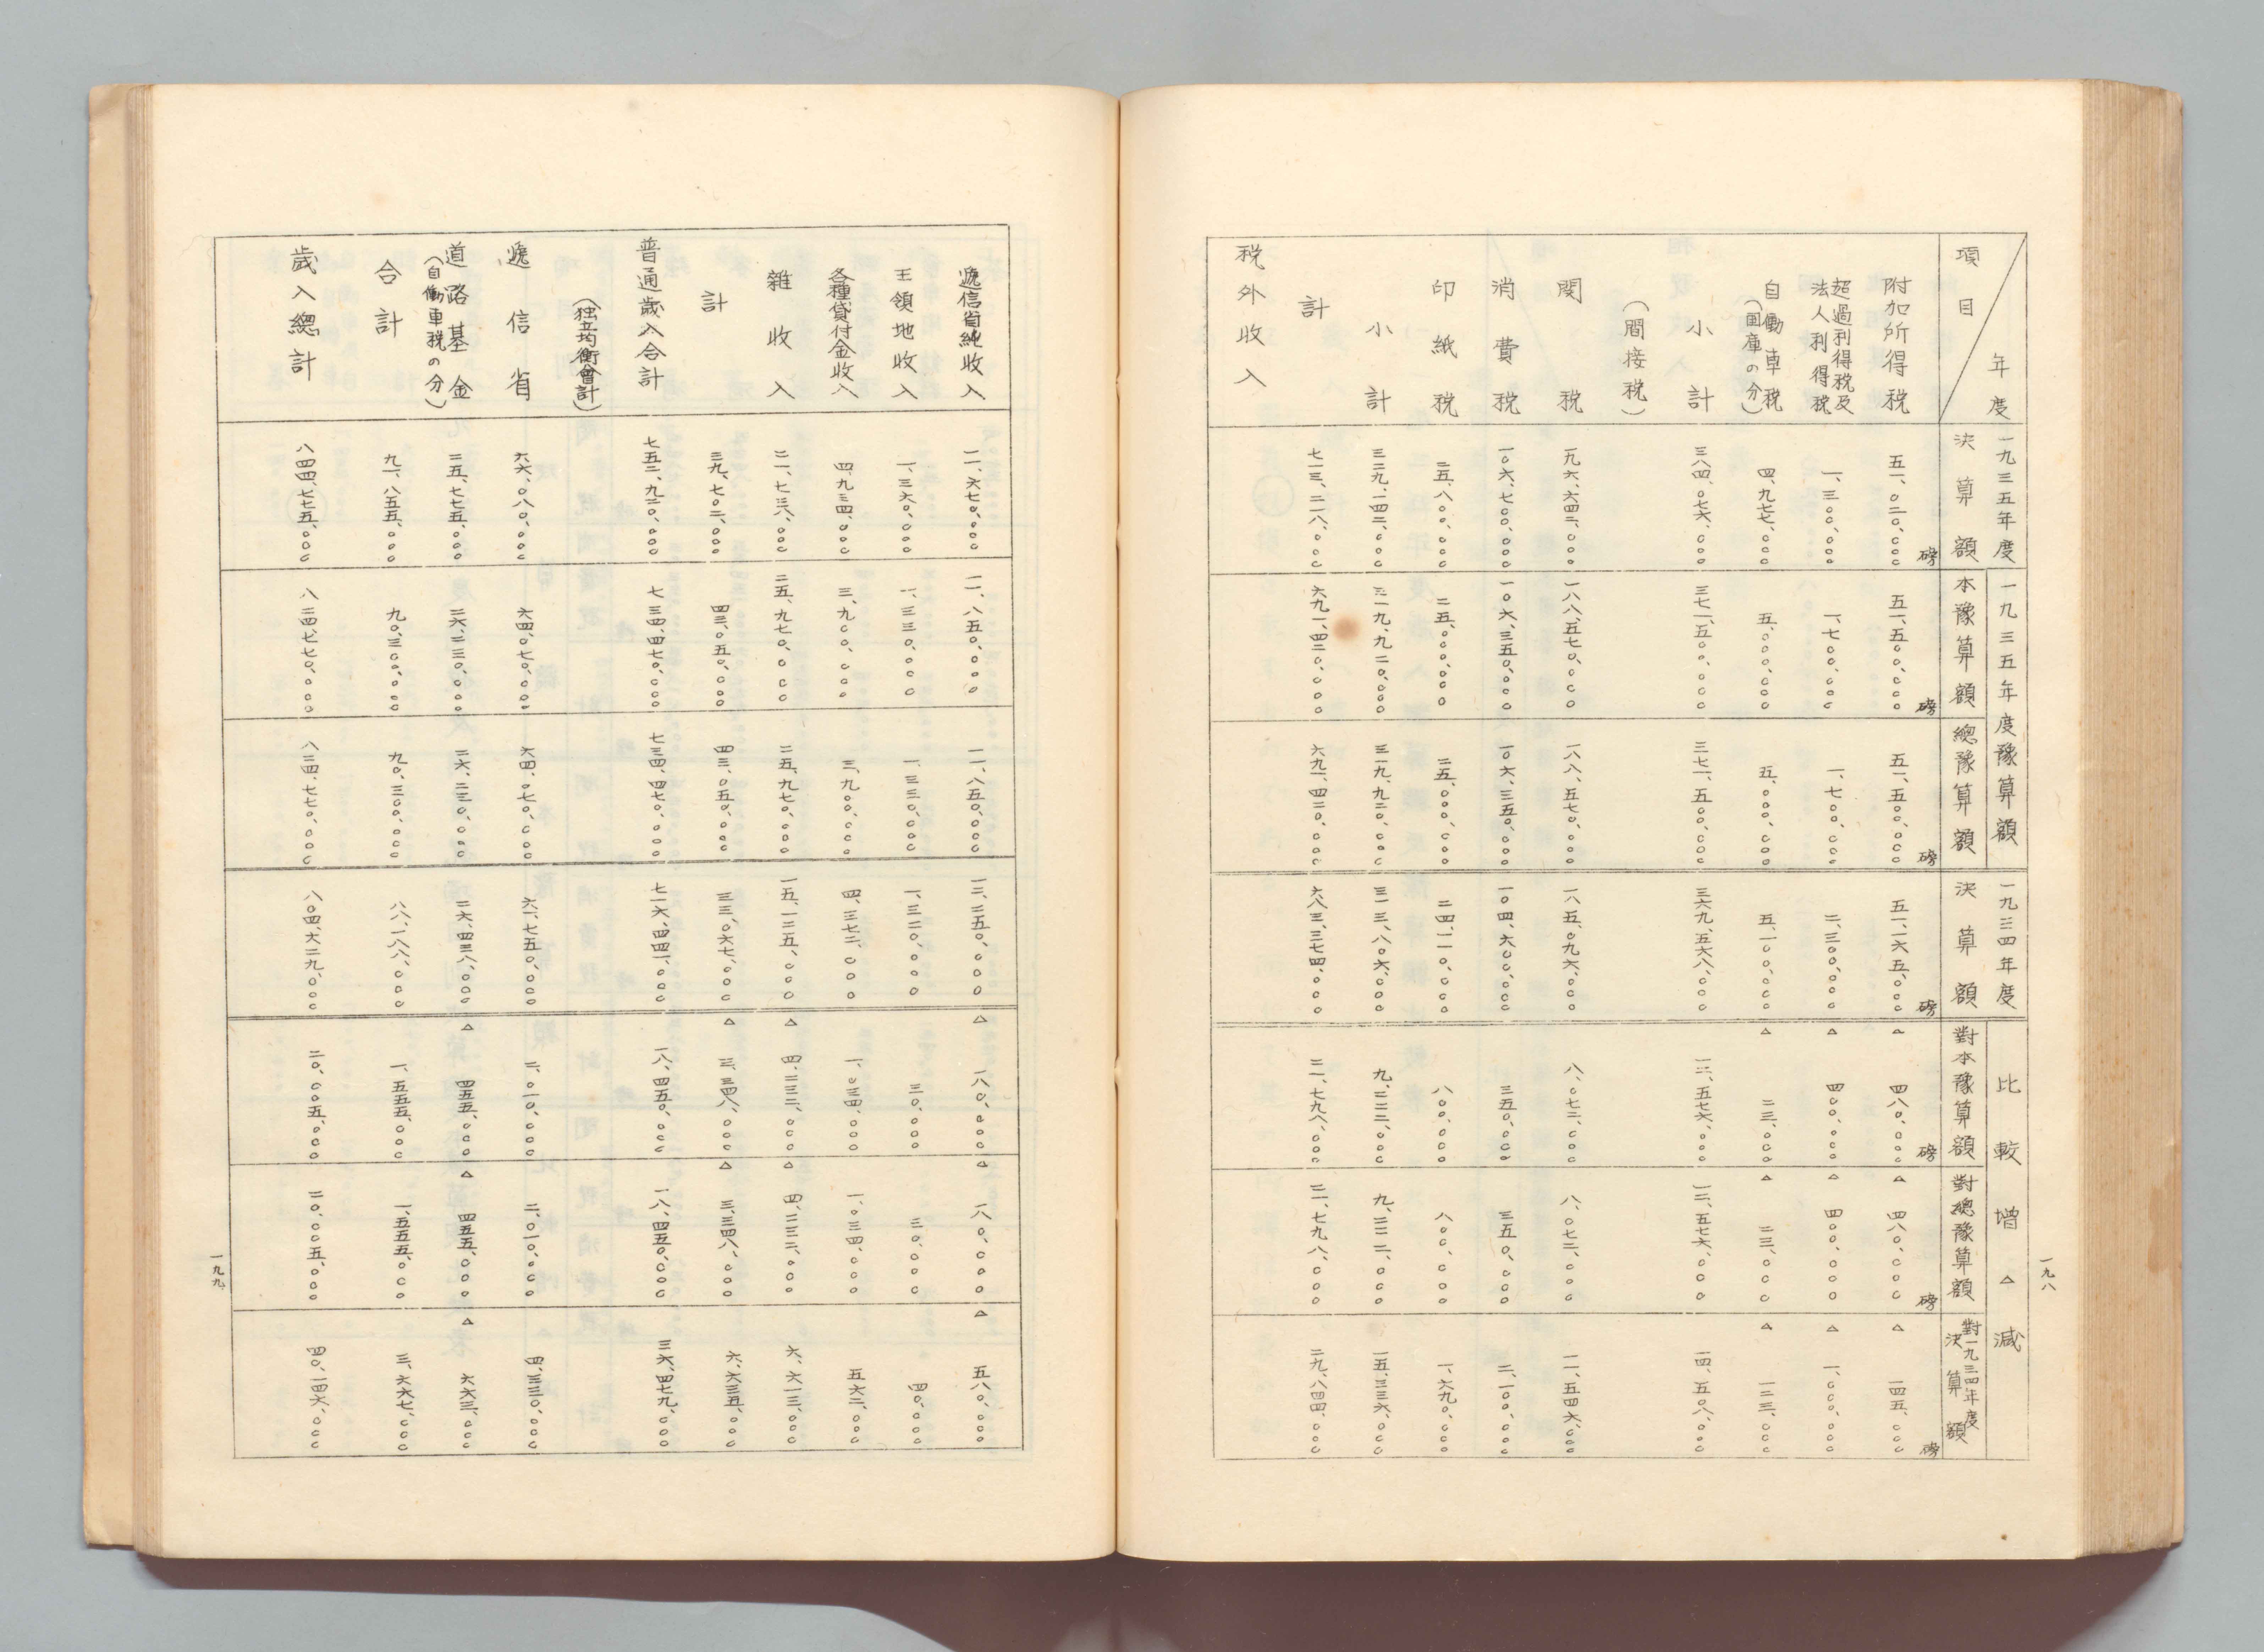 一九八
年度
項目
一九三五年度 一九三五年度豫算額 一九三四年度 比較增△減
決算額 本豫算額 總豫算額 決算額 對本豫算額 對總豫算額 對一九三四年度決算額
磅 磅 磅 磅 磅 磅 磅
附加所得税 五一、〇二〇、〇〇〇 五一、五〇〇、〇〇〇 五一、五〇〇、〇〇〇 五一、一六五、〇〇〇 △四八〇、〇〇〇 △四八〇、〇〇〇 △一四五、〇〇〇
超過利得税及法人利得税 一、三〇〇、〇〇〇 一、七〇〇、〇〇〇 一、七〇〇、〇〇〇 二、三〇〇、〇〇〇 △四〇〇、〇〇〇 △四〇〇、〇〇〇 △一、〇〇〇、〇〇〇
自働車税(国庫の分) 四、九七七、〇〇〇 五、〇〇〇、〇〇〇 五、〇〇〇、〇〇〇 五、一〇〇、〇〇〇 △二三、〇〇〇 △二三、〇〇〇 △一二三、〇〇〇
小計 三八四、〇七六、〇〇〇 三七一、五〇〇、〇〇〇 三七一、五〇〇、〇〇〇 三六九、五六八、〇〇〇 一二、五七六、〇〇〇 一二、五七六、〇〇〇 一四、五〇八、〇〇〇
(間接税)
関税 一九六、六四二、〇〇〇 一八八、五七〇、〇〇〇 一八八、五七〇、〇〇〇 一八五、〇九六、〇〇〇 八、〇七二、〇〇〇 八、〇七二、〇〇〇 一一、五四六、〇〇〇
消費税 一〇六、七〇〇、〇〇〇 一〇六、三五〇、〇〇〇 一〇六、三五〇、〇〇〇 一〇四、六〇〇、〇〇〇 三五〇、〇〇〇 三五〇、〇〇〇 二、一〇〇、〇〇〇
印紙税 二五、八〇〇、〇〇〇 二五、〇〇〇、〇〇〇 二五、〇〇〇、〇〇〇 二四、一一〇、〇〇〇 八〇〇、〇〇〇 八〇〇、〇〇〇 一、六九〇、〇〇〇
小計 三二九、一四二、〇〇〇 三一九、九二〇、〇〇〇 三一九、九二〇、〇〇〇 三一三、八〇六、〇〇〇 九、二二二、〇〇〇 九、二二二、〇〇〇 一五、三三六、〇〇〇
計 七一三、二一八、〇〇〇 六九一、四二〇、〇〇〇 六九一、四二〇、〇〇〇 六八三、三七四、〇〇〇 二一、七九八、〇〇〇 二一、七九八、〇〇〇 二九、八四四、〇〇〇
税外收入
遞信省純收入 一一、六七〇、〇〇〇 一一、八五〇、〇〇〇 一一、八五〇、〇〇〇 一二、二五〇、〇〇〇 △一八〇、〇〇〇 △一八〇、〇〇〇 △五八〇、〇〇〇
王領地收入 一、三六〇、〇〇〇 一、三三〇、〇〇〇 一、三三〇、〇〇〇 一、三二〇、〇〇〇 三〇、〇〇〇 三〇、〇〇〇 四〇、〇〇〇
各種貸付金收入 四、九三四、〇〇〇 三、九〇〇、〇〇〇 三、九〇〇、〇〇〇 四、三七二、〇〇〇 一、〇三四、〇〇〇 一、〇三四、〇〇〇 五六二、〇〇〇
雜收入 二一、七三八、〇〇〇 二五、九七〇、〇〇〇 二五、九七〇、〇〇〇 一五、一二五、〇〇〇 △四、二三二、〇〇〇 △四、二三二、〇〇〇 六、六一三、〇〇〇
計 三九、七〇二、〇〇〇 四三、〇五〇、〇〇〇 四三、〇五〇、〇〇〇 三三、〇六七、〇〇〇 △三、三四八、〇〇〇 △三、三四八、〇〇〇 六、六三五、〇〇〇
普通歳入合計 七五二、九二〇、〇〇〇 七三四、四七〇、〇〇〇 七三四、四七〇、〇〇〇 七一六、四四一、〇〇〇 一八、四五〇、〇〇〇 一八、四五〇、〇〇〇 三六、四七九、〇〇〇
(独立均衡會計)
遞信省 六六、〇八〇、〇〇〇 六四、〇七〇、〇〇〇 六四、〇七〇、〇〇〇 六一、七五〇、〇〇〇 二、〇一〇、〇〇〇 二、〇一〇、〇〇〇 四、三三〇、〇〇〇
道路基金(自働車税の分) 二五、七七五、〇〇〇 二六、二三〇、〇〇〇 二六、二三〇、〇〇〇 二六、四三八、〇〇〇 △四五五、〇〇〇 △四五五、〇〇〇 △六六三、〇〇〇
合計 九一、八五五、〇〇〇 九〇、三〇〇、〇〇〇 九〇、三〇〇、〇〇〇 八八、一八八、〇〇〇 一、五五五、〇〇〇 一、五五五、〇〇〇 三、六六七、〇〇〇
歳入總計 八四四、七七五、〇〇〇 八二四、七七〇、〇〇〇 八二四、七七〇、〇〇〇 八〇四、六二九、〇〇〇 二〇、〇〇五、〇〇〇 二〇、〇〇五、〇〇〇 四〇、一四六、〇〇〇
一九九